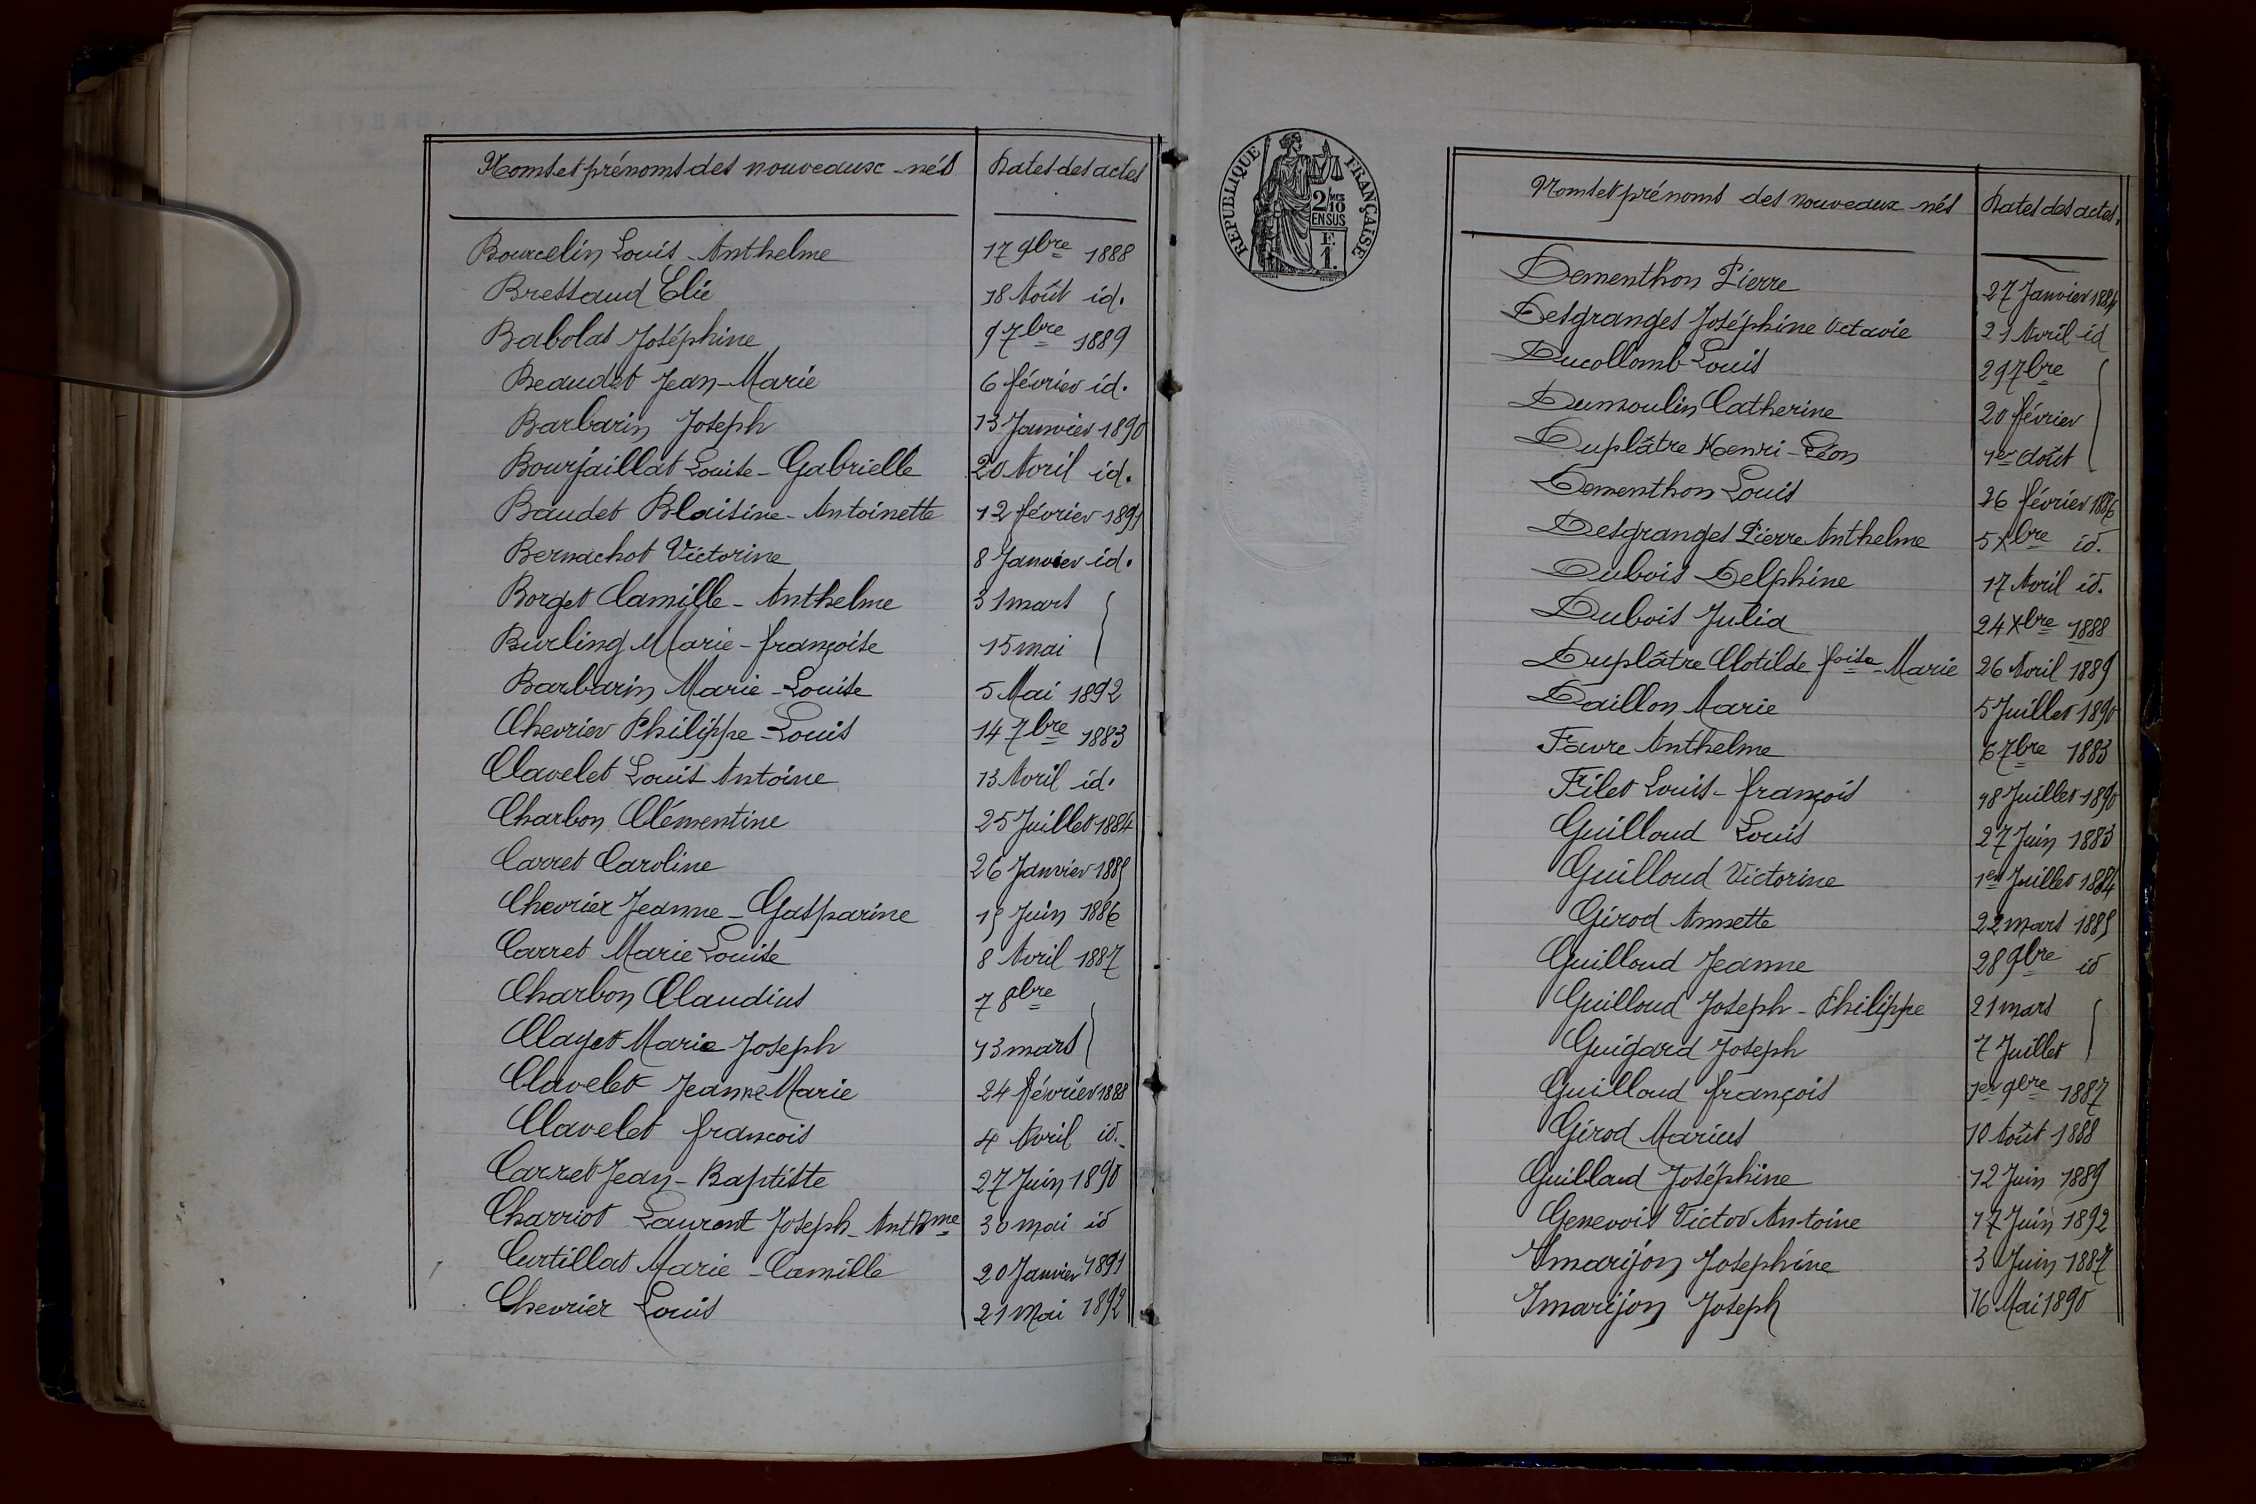 Noms et prénoms des nouveaux-nés | Dates des actes
Bourcelin Louis-Anthelme | 17 9bre 1888
Bressaud Elie | 18 Août id.
Babolat Joséphine | 9 7bre 1889
Beaudet Jean-Marie | 6 février id.
Barbarin Joseph | 13 Janvier 1890
Bourjaillat Louise-Gabrielle | 20 Avril id.
Baudet Blaisine-Antoinette | 12 février 1891
Bernachot Victorine | 8 Janvier id.
Borget Camille-Anthelme | 31 mars
Burling Marie-françoise | 15 mai
Barbarin Marie-Louise | 5 Mai 1892
Chevrier Philippe-Louis | 14 7bre 1883
Clavelet Louis Antoine | 13 Avril id.
Charbon Clémentine | 25 Juillet 1884
Carret Caroline | 26 Janvier 1885
Chevrier Jeanne-Gasparine | 15 Juin 1886
Carret Marie Louise | 8 Avril 1887
Charbon Claudius | 7 8bre
Clayet Marie Joseph | 13 mars
Clavelet Jeanne Marie | 24 février 1888
Clavelet françois | 4 Avril id.
Carret Jean-Baptiste | 27 Juin 1890
Charriot Laurent Joseph-Anthme | 30 mai id
Curtillat Marie-Camille | 20 Janvier 1891
Chevrier Louis | 21 Mai 1892
RÉPUBLIQUE FRANÇAISE
2/10
EN SUS
F.
1.
Noms et prénoms des nouveaux-nés | Dates des actes.
Dementhon Pierre | 27 Janvier 1884
Desgranges Joséphine Octavie | 21 Avril id
Ducollomb Louis | 29 7bre
Dumoulin Catherine | 20 février
Duplâtre Henri-Léon | 1er août
Dementhon Louis | 26 février 1886
Desgranges Pierre Anthelme | 5 Xbre id.
Dubois Delphine | 17 Avril id.
Dubois Julia | 24 Xbre 1888
Duplâtre Clotilde foise-Marie | 26 Avril 1889
Daillon Marie | 5 Juillet 1890
Favre Anthelme | 6 7bre 1883
Filet Louis-françois | 18 Juillet 1890
Guilloud Louis | 27 Juin 1883
Guilloud Victorine | 1er Juillet 1884
Girod Annette | 22 mars 1885
Guilloud Jeanne | 28 9bre id
Guilloud Joseph-Philippe | 21 mars
Guigard Joseph | 7 Juillet
Guilloud françois | 1er 9bre 1887
Girod Marius | 10 Août 1888
Guilloud Joséphine | 12 Juin 1889
Genevois Victor Antoine | 17 Juin 1892
Imarijon Josephine | 3 Juin 1887
Imarijon Joseph | 16 Mai 1890